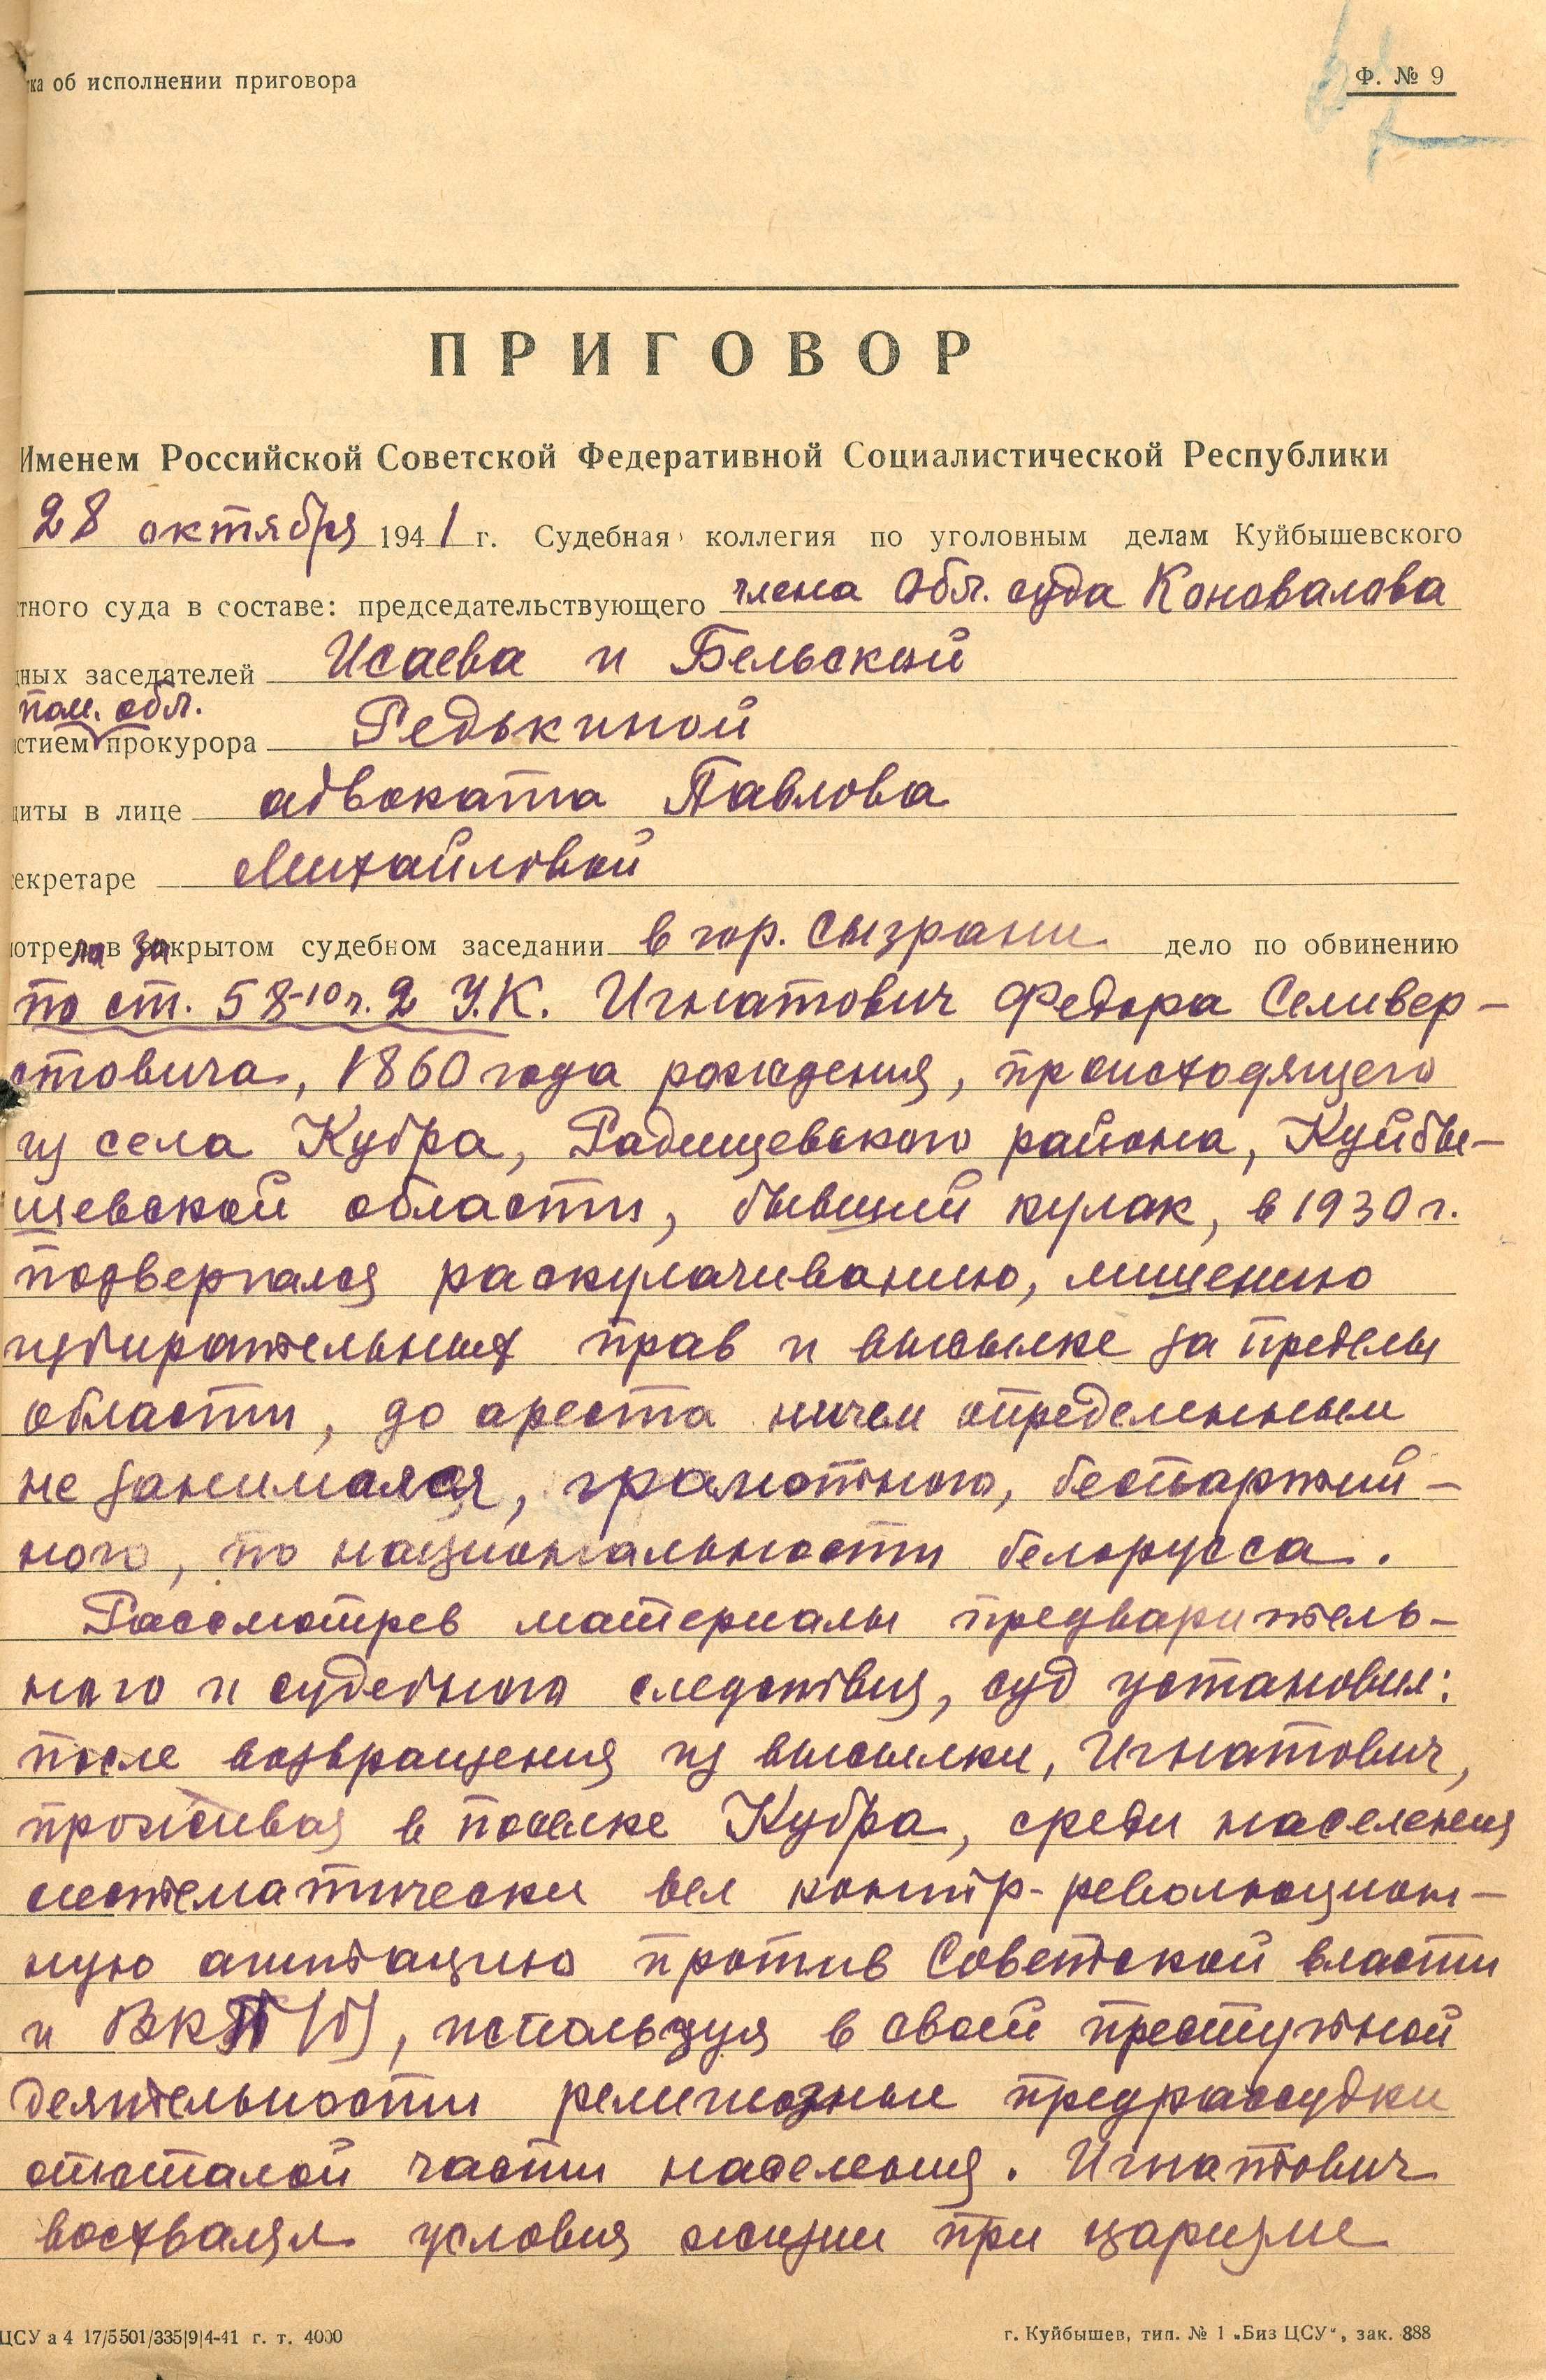 тка об исполнении приговора
Ф. № 9
ПРИГОВОР
Именем Российской Советской Федеративной Социалистической Республики
28 октября 1941 г. Судебная коллегия по уголовным делам Куйбышевского
стного суда в составе: председательствующего члена Обл. суда Коновалова
дных заседателей Исаева и Бельской
пом. обл.
астием прокурора Редькиной
щиты в лице адвоката Павлова
секретаре Михайловой
мотрела в закрытом судебном заседании в гор. Сызрани дело по обвинению
по ст. 58-10 ч. 2 У.К. Игнатович Федора Селивер-
стовича, 1860 года рождения, происходящего
из села Кубра, Радищевского района, Куйбы-
шевской области, бывший кулак, в 1930 г.
подвергался раскулачиванию, лишению
избирательных прав и высылке за пределы
области, до ареста ничем определенным
не занимался, грамотного, беспартий-
ного, по национальности белорусса.
Рассмотрев материалы предваритель-
ного и судебного следствия, суд установил:
после возвращения из высылки, Игнатович,
проживая в поселке Кубра, среди населения
систематически вел контр-революцион-
ную агитацию против Советской власти
и ВКП(б), используя в своей преступной
деятельности религиозные предрассудки
отсталой части населения. Игнатович
восхвалял условия жизни при царизме
ЦСУ а 4 17/5501/335|9|4-41 г. т. 4000
г. Куйбышев, тип. № 1 „Биз ЦСУ“, зак. 888